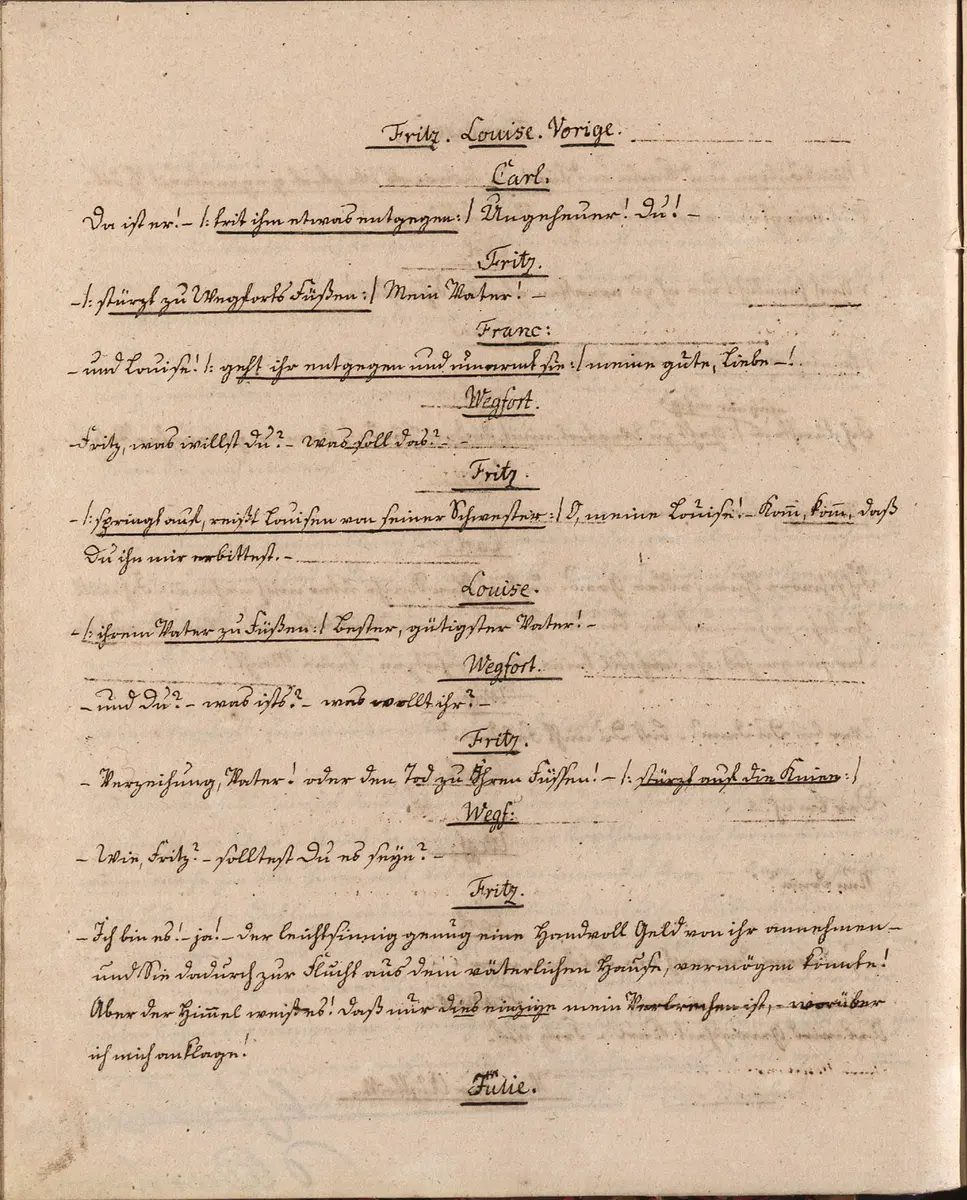 Fritz. Louise. Vorige.
Carl.
Da ist er! – /: trit ihm etwas entgegen: / Ungeheuer! Du! –
Fritz.
– /: stürzt zu Wegforts Füßen: / Mein Vater! –
Franc:
– und Louise! /: geht ihr entgegen und umarmt sie: / meine gute, Liebe –!
Wegfort.
Fritz, was willst du? – was soll das? –
Fritz.
– /: springt auf, reißt Louisen von seiner Schwester: / O, meine Louise! – Kom̄, kom̄, daß
Du ihn mir erbittest. –
Louise.
– /: ihrem Vater zu Füßen: / Bester, gütigster Vater! –
Wegfort.
– und Du? – was ists? – was wollt ihr? –
Fritz.
– Verzeihung, Vater! oder den Tod zu Ihren Füssen! – /: stürzt auf die Kniee: /
Wegf:
– Wie, Fritz? – solltest Du es seyn? –
Fritz.
– Ich bin es! – ja! – der leichtsinnig genug eine Handvoll Geld von ihr annehmen –
und Sie dadurch zur Flucht aus dem väterlichen Hause, vermögen konnte!
Aber der Him̄el weiß es! daß nur dies einzige mein Verbrechen ist, – worüber
ich mich anklage!
Julie.